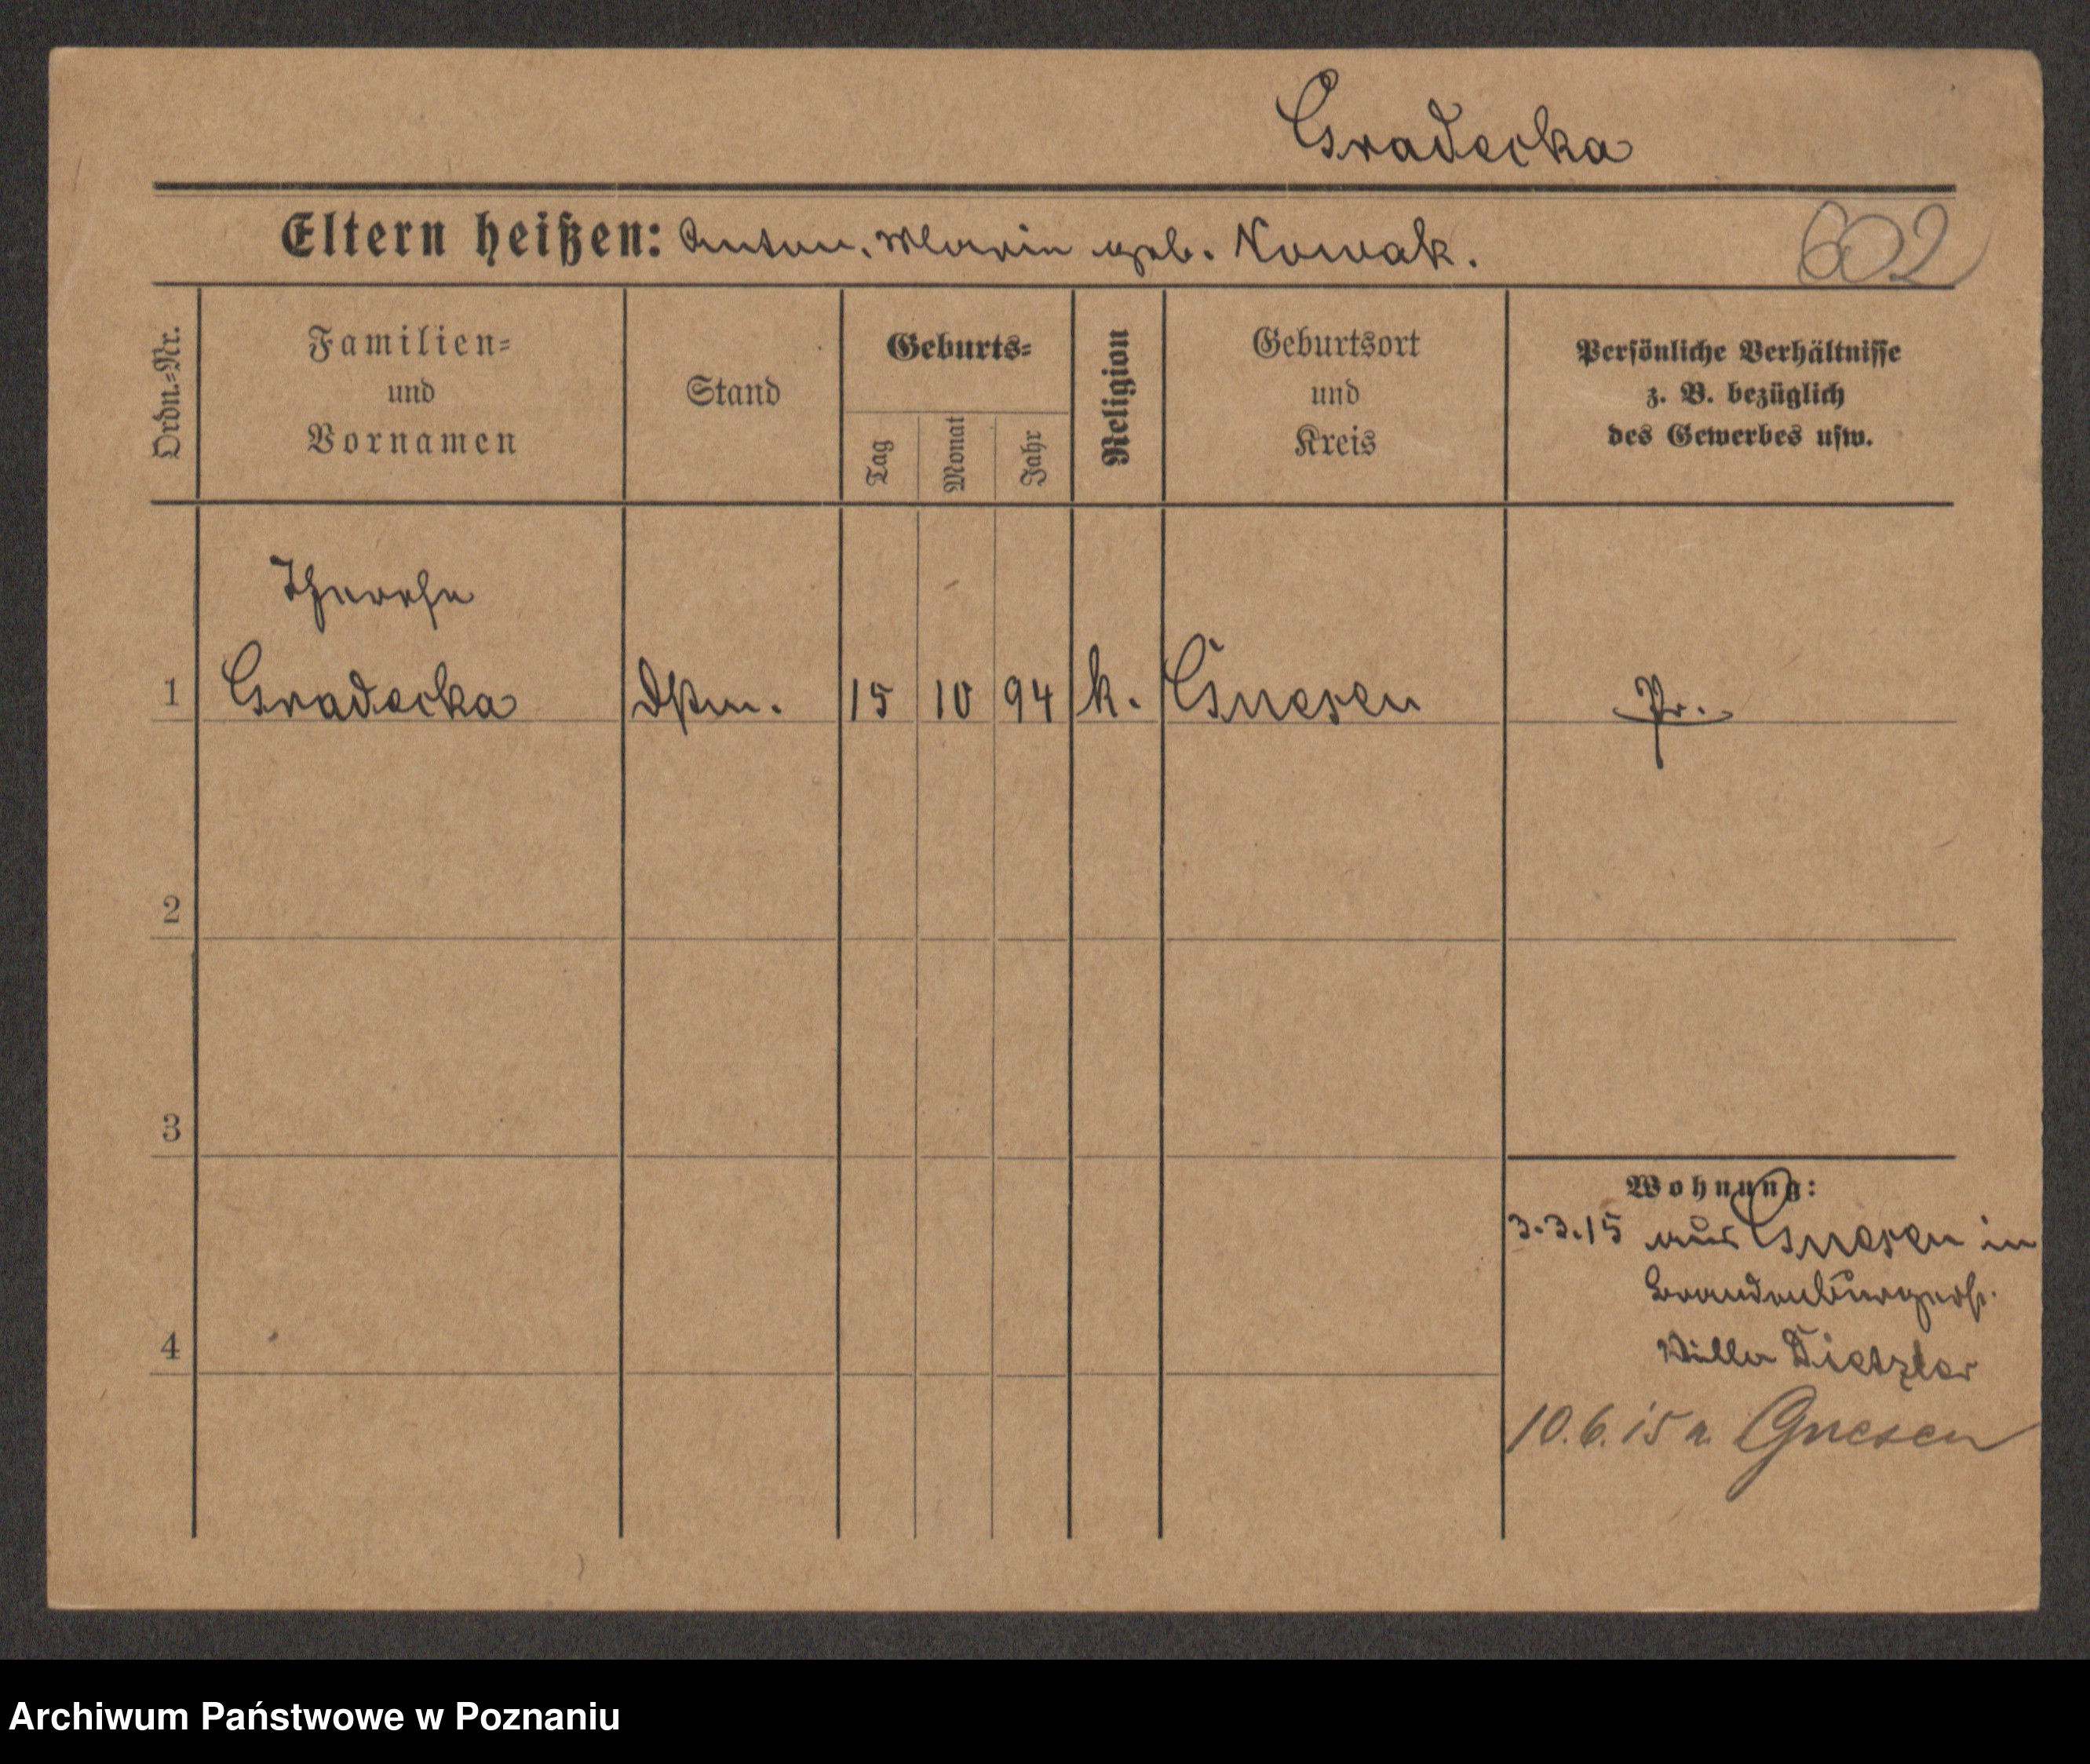 Gradecka
Eltern heißen: Anton, Marie geb. Nowak.
602
Ordn.=Nr.
Familien=
und
Vornamen
Stand
Geburts=
Tag
Monat
Jahr
Religion
Geburtsort
und
Kreis
Persönliche Verhältnisse
z. B. bezüglich
des Gewerbes usw.
Therese
1 Gradecka Dstm. 15 10 94 k. Gnesen Pr.
2
3
4
Wohnung:
3.3.15 aus Gnesen in
Brandenburgerstr.
Dietzler
10.6.15 n. Gnesen
Archiwum Państwowe w Poznaniu